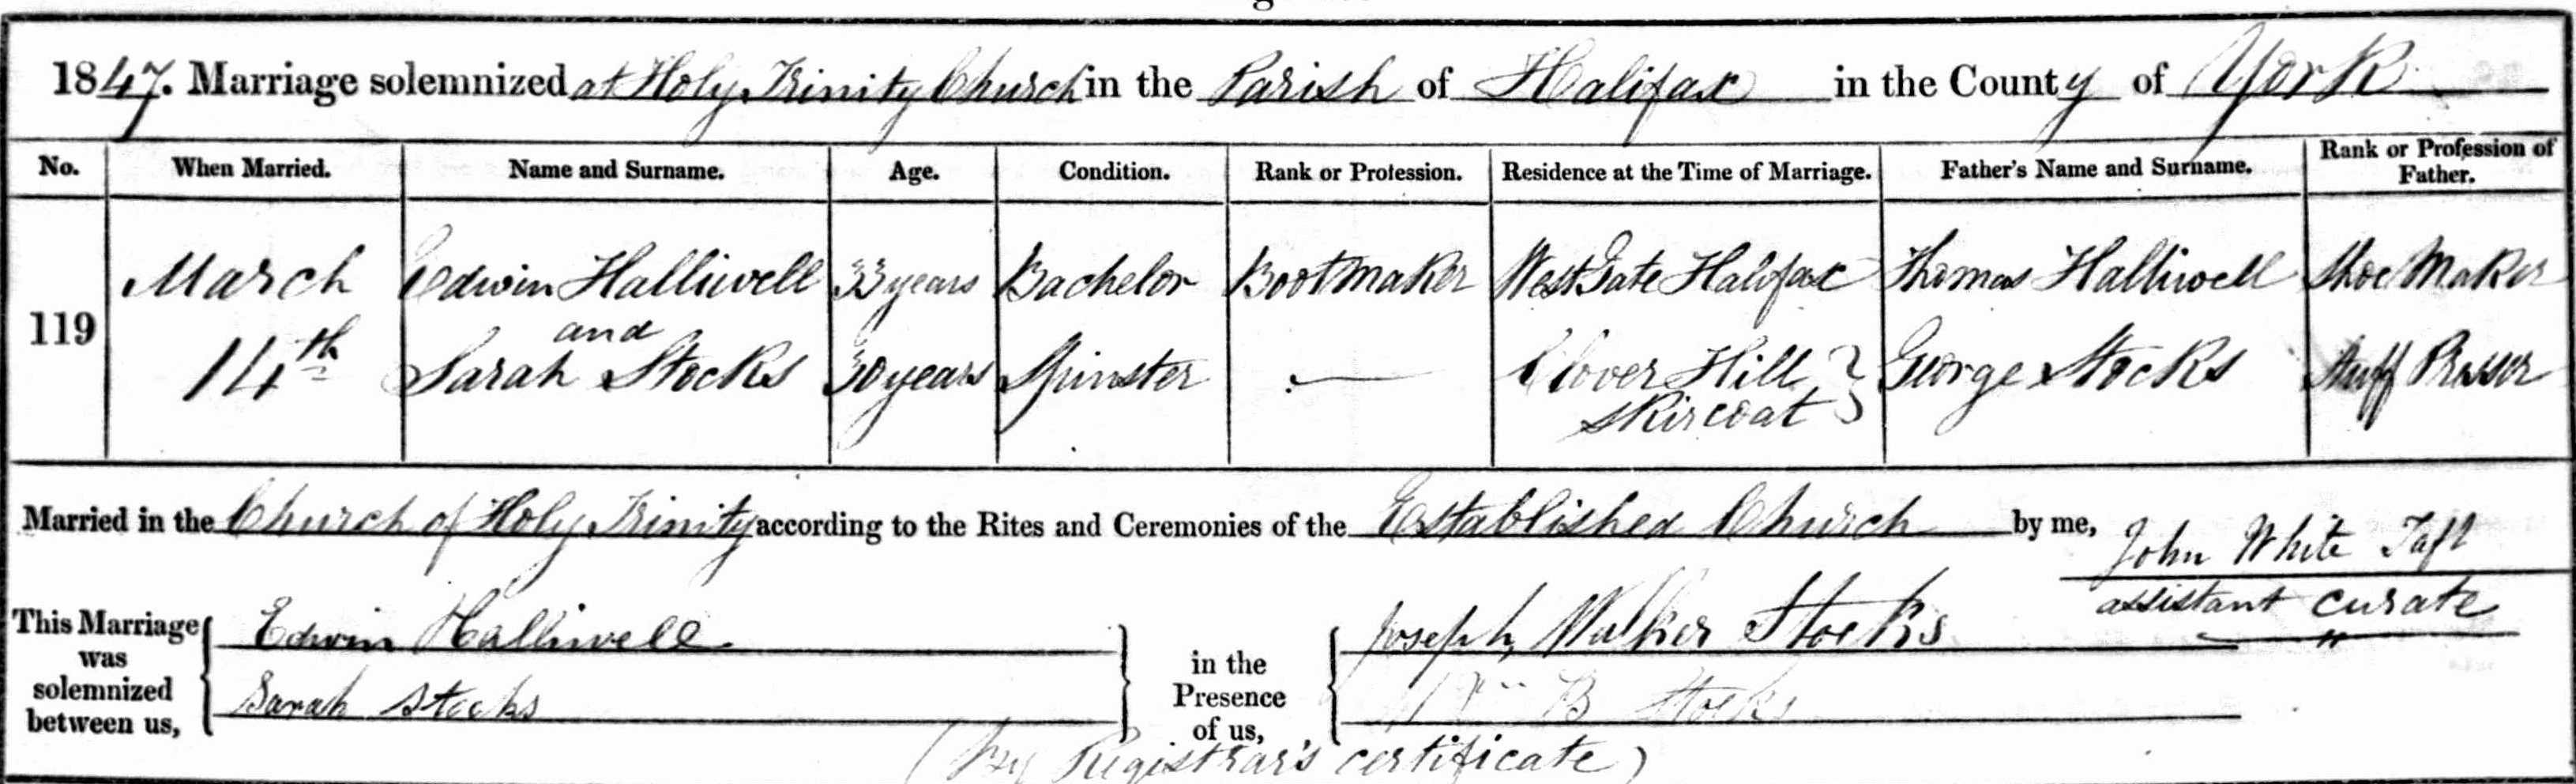 1847. Marriage solemnized at Holy Trinity Church in the Parish of Halifax in the County of York
No. When Married. Name and Surname. Age. Condition. Rank or Profession. Residence at the Time of Marriage. Father's Name and Surname. Rank or Profession of Father.
119 March 14th Edwin Halliwell 33 years Bachelor Boot Maker West Gate Halifax Thomas Halliwell Shoe Maker
and
Sarah Stocks 30 years Spinster — Clover Hill Skircoat George Stocks Stuff Presser
Married in the Church of Holy Trinity according to the Rites and Ceremonies of the Established Church by me, John White Taft
assistant curate
This Marriage was solemnized between us, Edwin Halliwell Sarah Stocks in the Presence of us, Joseph Walker Stocks B Stocks
(by Registrar's certificate)